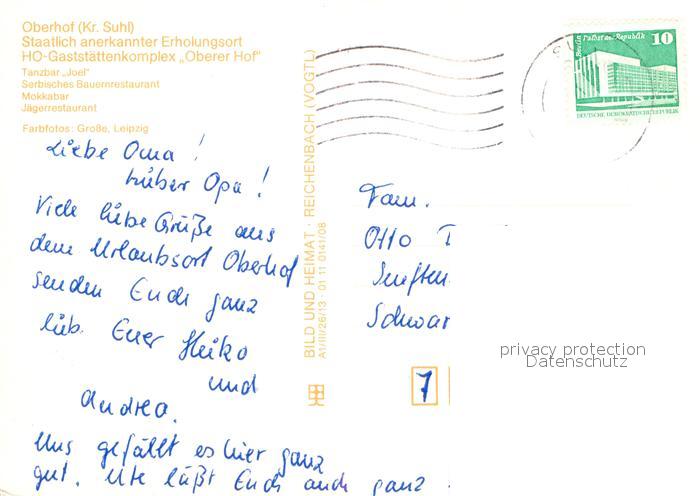 Oberhof (Kr. Suhl)
Staatlich anerkannter Erholungsort
HO-Gaststättenkomplex „Oberer Hof"
Tanzbar „Joel"
Serbisches Bauernrestaurant
Mokkabar
Jägerrestaurant
Farbfotos: Große, Leipzig
Liebe Oma!
Lieber Opa!
Viele liebe Grüße aus
dem Urlaubsort Oberhof
senden Euch ganz
lieb. Euer Heiko
und
Andrea.
Uns gefällt es hier ganz
gut. Ute läßt Euch auch ganz
BILD UND HEIMAT REICHENBACH (VOGTL)
A1/III/26/13 01 11 0141/08
Berlin Palast der Republik
10
DEUTSCHE DEMOKRATISCHE REPUBLIK
Fam.
Otto
Senften
Schwar
7
privacy protection
Datenschutz